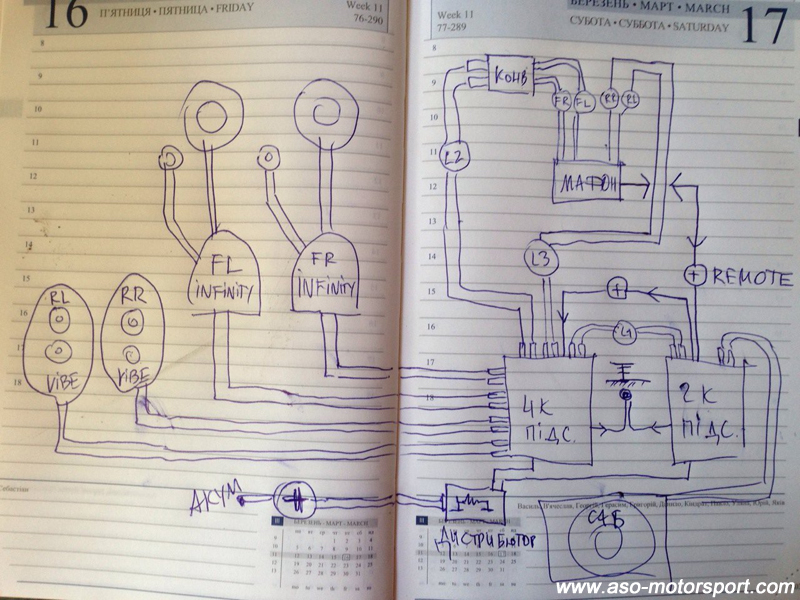 16
П'ЯТНИЦЯ • ПЯТНИЦА • FRIDAY
Week 11
76-290
8
9
10
11
12
13
14
15
16
17
18
FL
INFINITY
FR
INFINITY
RL
VIBE
RR
VIBE
АКУМ
БЕРЕЗЕНЬ • МАРТ • MARCH
Week 11
77-289
БЕРЕЗЕНЬ • МАРТ • MARCH
СУБОТА • СУББОТА • SATURDAY
17
8
9
10
11
12
13
14
15
16
17
18
КОНВ
FR
FL
RR
RL
L2
МАФОН
L3
+
REMOTE
+
L1
4К
ПІДС.
2К
ПІДС.
ДИСТРИБЮТОР
САБ
БЕРЕЗЕНЬ • МАРТ • MARCH
www.aso-motorsport.com